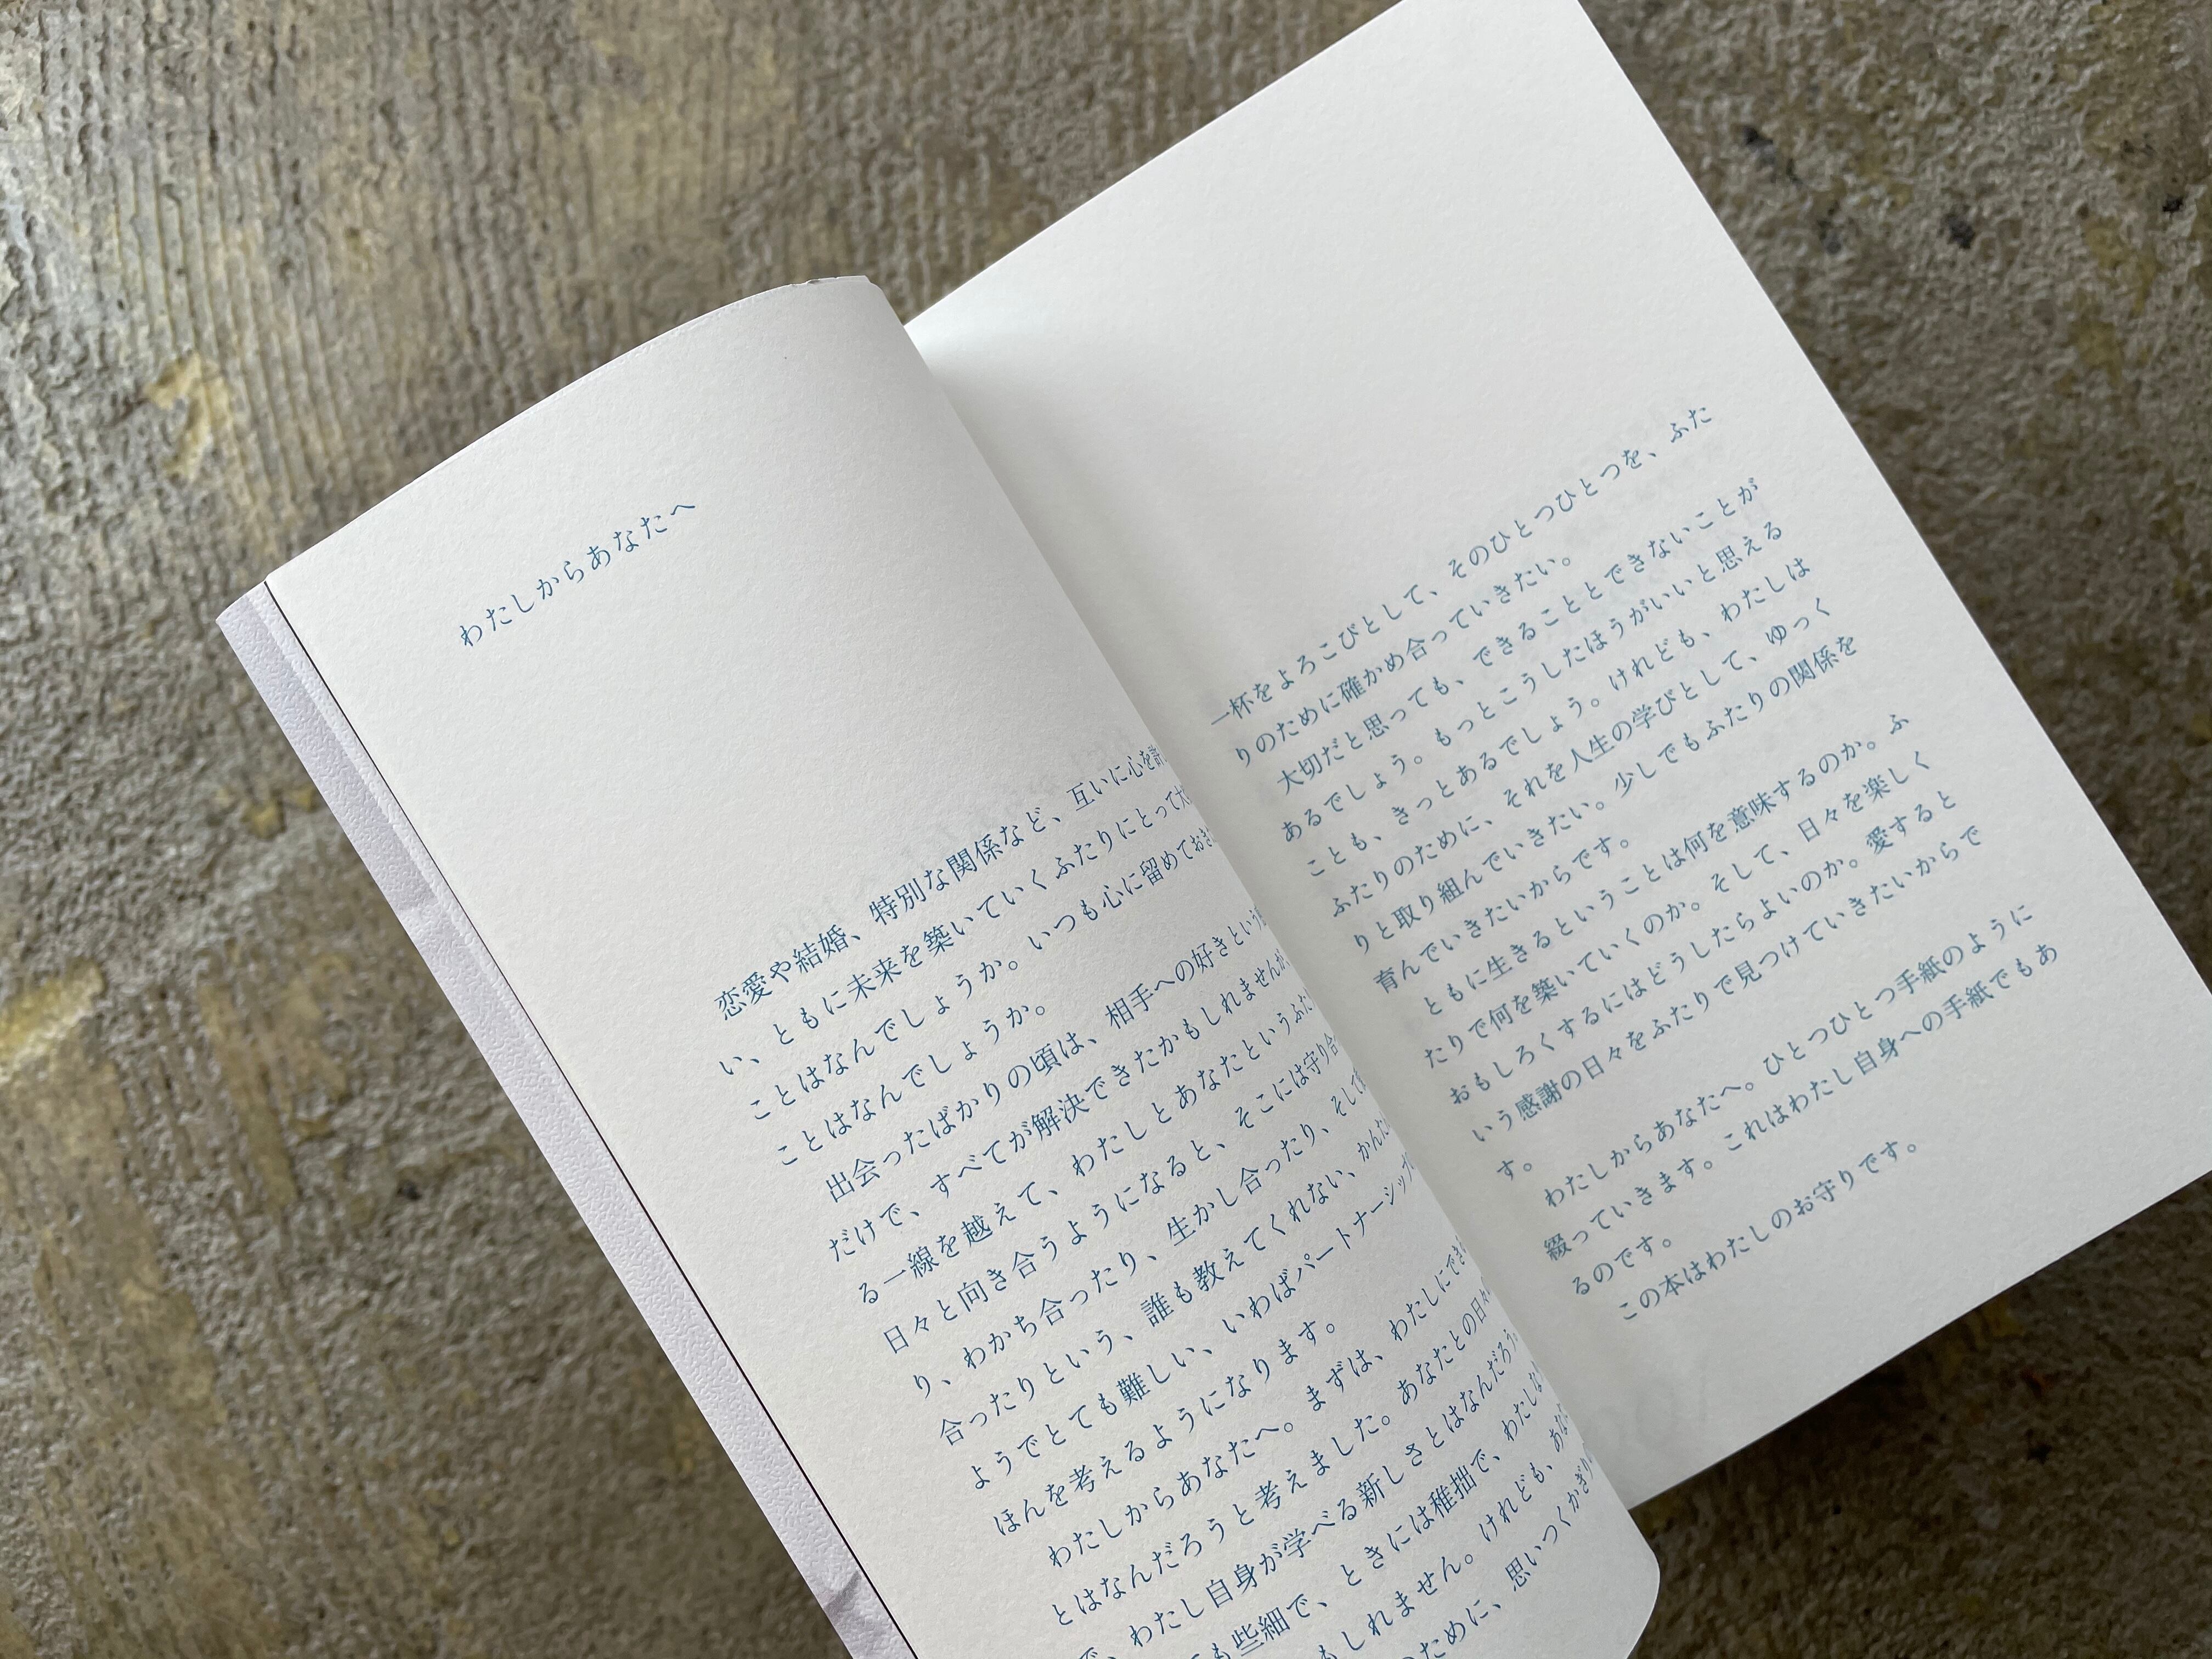 わたしからあなたへ
恋愛や結婚、特別な関係など、互いに心を許
い、ともに未来を築いていくふたりにとって大
ことはなんでしょうか。いつも心に留めておき
ことはなんでしょうか。
出会ったばかりの頃は、相手への好きという
だけで、すべてが解決できたかもしれませんが
る一線を越えて、わたしとあなたというふた
日々と向き合うようになると、そこには守り合
り、わかち合ったり、生かし合ったり、そして
合ったりという、誰も教えてくれない、かんた
ようでとても難しい、いわばパートナーシップ
ほんを考えるようになります。
わたしからあなたへ。まずは、わたしにでき
とはなんだろうと考えました。あなたとの日々
で、わたし自身が学べる新しさとはなんだろう。
も些細で、ときには稚拙で、わたしな
もしれません。けれども、あな
ために、思いつくかぎり
一杯をよろこびとして、そのひとつひとつを、ふた
りのために確かめ合っていきたい。
大切だと思っても、できることとできないことが
あるでしょう。もっとこうしたほうがいいと思える
ことも、きっとあるでしょう。けれども、わたしは
ふたりのために、それを人生の学びとして、ゆっく
りと取り組んでいきたい。少しでもふたりの関係を
育んでいきたいからです。
ともに生きるということは何を意味するのか。ふ
たりで何を築いていくのか。そして、日々を楽しく
おもしろくするにはどうしたらよいのか。愛すると
いう感謝の日々をふたりで見つけていきたいからで
す。
わたしからあなたへ。ひとつひとつ手紙のように
綴っていきます。これはわたし自身への手紙でもあ
るのです。
この本はわたしのお守りです。